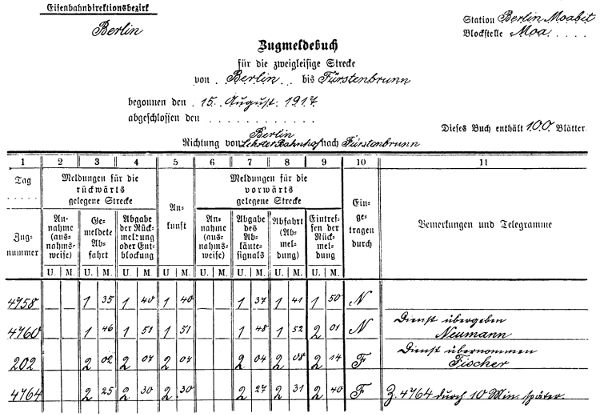 Eisenbahndirektionsbezirk
Berlin
Station Berlin Moabit
Blockstelle Moa.
Zugmeldebuch
für die zweigleisige Strecke
von Berlin bis Fürstenbrunn
begonnen den 15. August 1917
abgeschlossen den
Dieses Buch enthält 100 Blätter
Berlin
Richtung von Lehrter Bahnhof nach Fürstenbrunn
1 2 3 4 5 6 7 8 9 10 11
Tag
Zug-
nummer
Meldungen für die
rückwärts
gelegene Strecke
An-
nahme
(aus-
nahms-
weise)
Ge-
meldete
Ab-
fahrt
Abgabe
der Rück-
meldung
oder Ent-
blockung
An-
kunft
Meldungen für die
vorwärts
gelegene Strecke
An-
nahme
(aus-
nahms-
weise)
Abgabe
des
Ab-
läute-
signals
Abfahrt
(Ab-
mel-
dung)
Eintref-
fen der
Rück-
meldung
Ein-
ge-
tragen
durch
Bemerkungen und Telegramme
U. M. U. M. U. M. U. M. U. M. U. M. U. M. U. M.
4758 1 35 1 40 1 40 1 37 1 41 1 50 N
4760 1 46 1 51 1 51 1 48 1 52 2 01 N Dienst übergeben
Neumann
202 2 02 2 07 2 07 2 04 2 08 2 14 F Dienst übernommen
Fischer
4764 2 25 2 30 2 30 2 27 2 31 2 40 F Z. 4764 durch 10 Min. später.